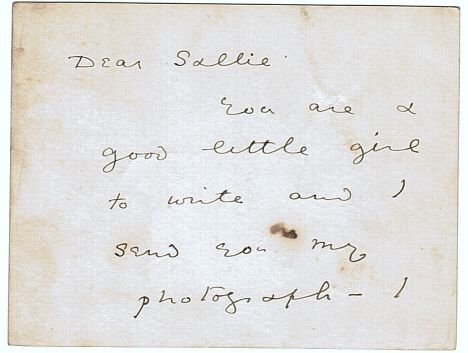 Dear Sallie
You are a
good little girl
to write and I
send you my
photograph – I